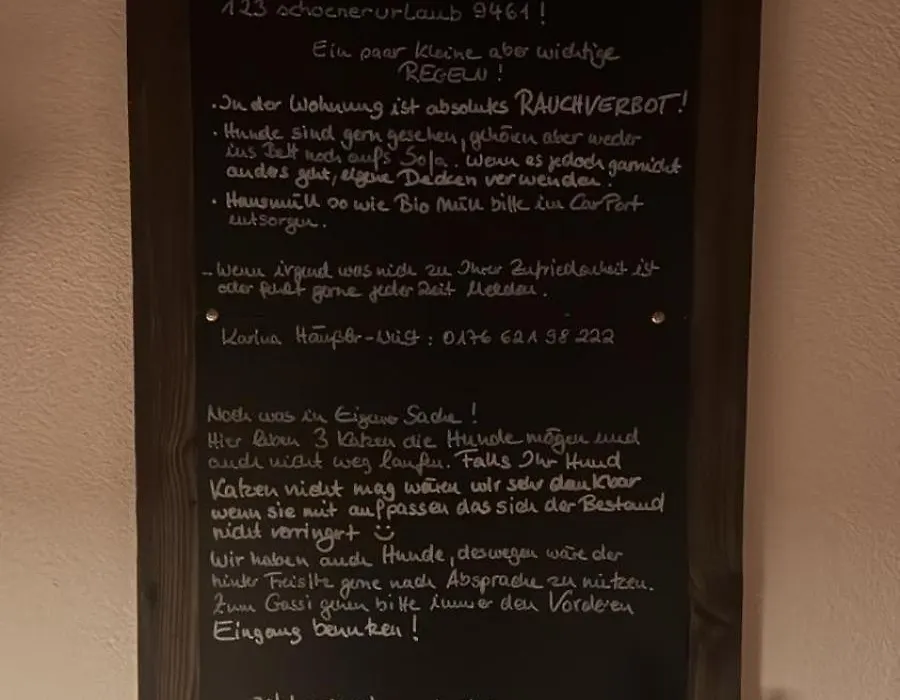 123 schoenerurlaub 9461!
Ein paar kleine aber wichtige
REGELN!
· In der Wohnung ist absolutes RAUCHVERBOT!
· Hunde sind gern gesehen, gehören aber weder
ins Bett noch aufs Sofa. Wenn es jedoch garnicht
anders geht, eigene Decken verwenden.
· Hausmüll so wie Bio Müll bitte im CarPort
entsorgen.
- Wenn irgend was nich zu Ihrer Zufriedenheit ist
oder fehlt gerne jeder Zeit Melden.
Karina : 0176 621 98 222
Noch was in Eigener Sache!
Hier leben 3 Katzen die Hunde mögen und
auch nicht weg laufen. Falls Ihr Hund
Katzen nicht mag wären wir sehr dankbar
wenn sie mit aufpassen das sich der Bestand
nicht verringert
Wir haben auch Hunde, deswegen wäre der
hinter Freisitz gerne nach Absprache zu nützen.
Zum Gassi gehen bitte immer den Vorderen
Eingang benutzen!